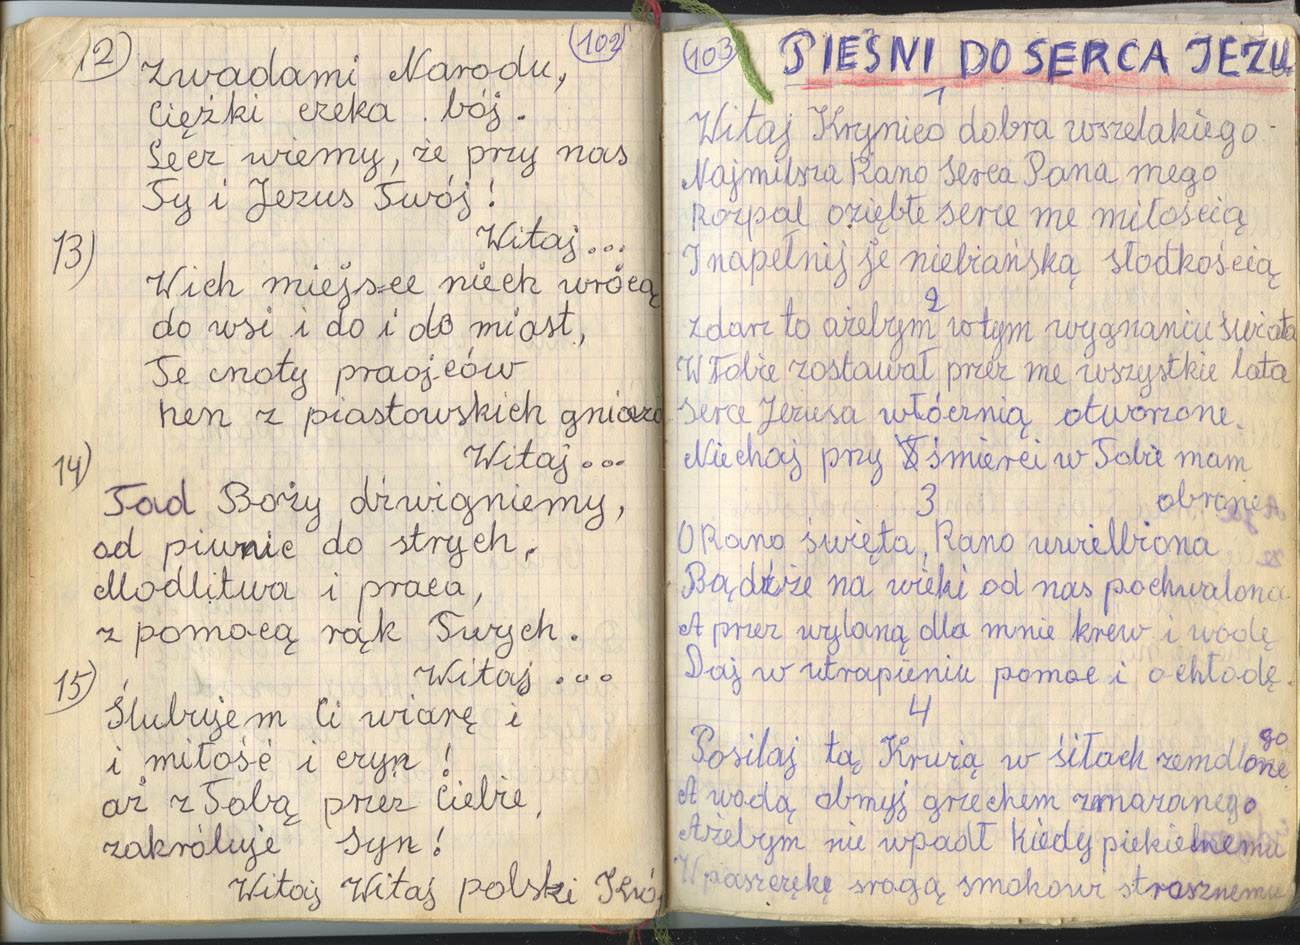 102
12) z wadami Narodu,
Ciężki czeka bój.
Lecz wiemy, że przy nas
Ty i Jezus Twój!
Witaj...
13)
W ich miejsce niech wrócą
do wsi i do i do miast,
Te cnoty praojców
hen z piastowskich gniazd
Witaj...
14)
Ład Boży dźwigniemy,
od piwnic do strych,
Modlitwa i praca,
z pomocą rąk Twych.
Witaj...
15)
Ślubujem Ci wiarę i
i miłość i czyn!
aż z Tobą przez Ciebie,
zakróluje Syn!
Witaj Witaj polski Kró
103 PIEŚNI DO SERCA JEZU
1
Witaj Krynico dobra wszelakiego
Najmilsza Rano Serca Pana mego
Rozpal oziębłe serce me miłością
I napełnij je niebiańską słodkością
2
Zdarz to ażebym w tym wygnaniu świata
W Tobie zostawał przez me wszystkie lata
Serce Jezusa włócznią otworzone.
Niechaj przy śmierci w Tobie mam
obronę
3
O Rano święta, Rano uwielbiona
Bądźże na wieki od nas pochwalona
A przez wylaną dla mnie krew i wodę
Daj w utrapieniu pomoc i ochłodę.
4
Posilaj tą Krwią w siłach zemdlonego
A wodą obmyj grzechem zmazanego
Ażebym nie wpadł kiedy piekielnemu
W paszczękę srogą smokowi strasznemu